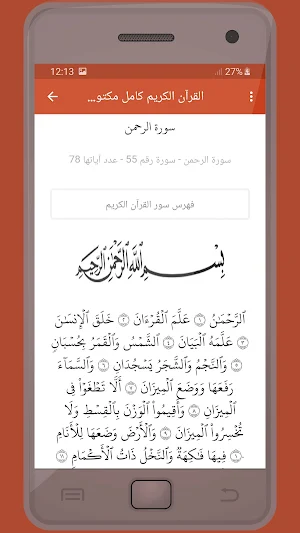 12:13
27%
القرآن الكريم كامل مكتو...
سورة الرحمن
سورة الرحمن - سورة رقم 55 - عدد آياتها 78
فهرس سور القرآن الكريم
بِسْمِ اللَّهِ الرَّحْمَٰنِ الرَّحِيمِ
ٱلرَّحْمَٰنُ ۝١ عَلَّمَ ٱلْقُرْءَانَ ۝٢ خَلَقَ ٱلْإِنسَٰنَ
۝٣ عَلَّمَهُ ٱلْبَيَانَ ۝٤ ٱلشَّمْسُ وَٱلْقَمَرُ بِحُسْبَانٍ
۝٥ وَٱلنَّجْمُ وَٱلشَّجَرُ يَسْجُدَانِ ۝٦ وَٱلسَّمَآءَ
رَفَعَهَا وَوَضَعَ ٱلْمِيزَانَ ۝٧ أَلَّا تَطْغَوْا۟ فِى
ٱلْمِيزَانِ ۝٨ وَأَقِيمُوا۟ ٱلْوَزْنَ بِٱلْقِسْطِ وَلَا
تُخْسِرُوا۟ ٱلْمِيزَانَ ۝٩ وَٱلْأَرْضَ وَضَعَهَا لِلْأَنَامِ
۝١٠ فِيهَا فَٰكِهَةٌ وَٱلنَّخْلُ ذَاتُ ٱلْأَكْمَامِ ۝١١